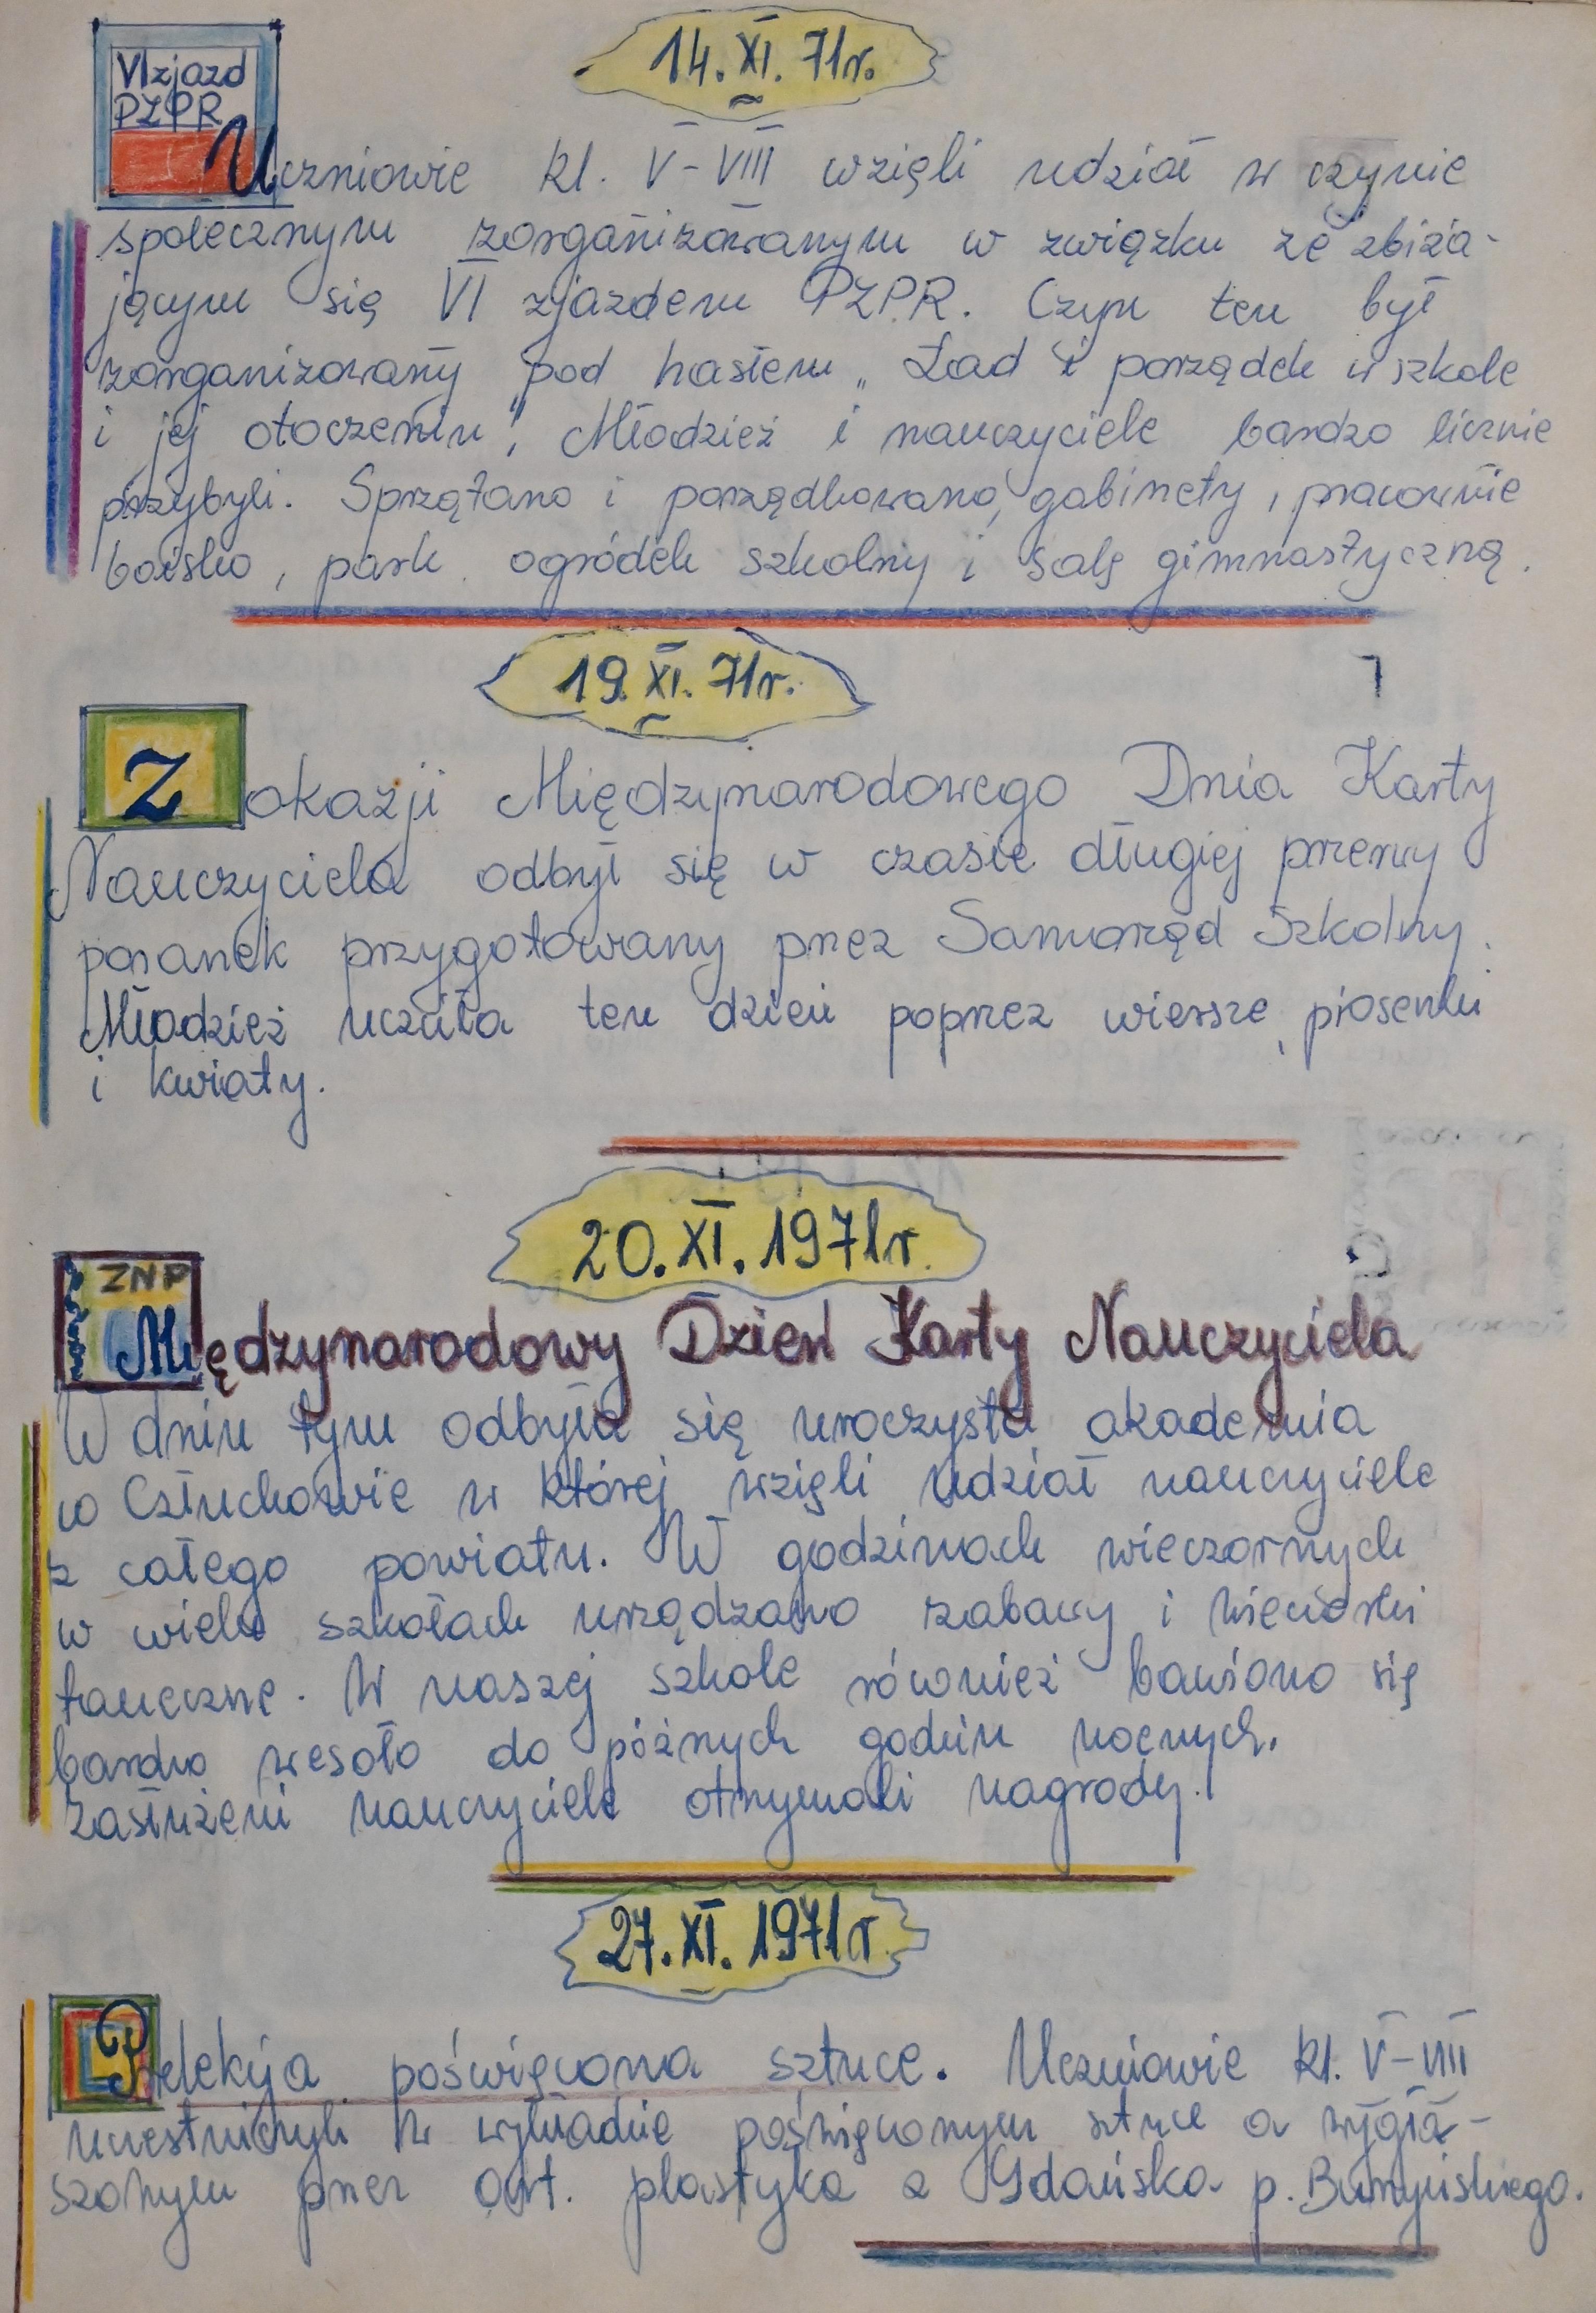 14. XI. 71r.
VI zjazd
PZPR
Uczniowie kl. V-VIII wzięli udział w czynie
społecznym zorganizowanym w związku ze zbliża-
jącym się VI zjazdem PZPR. Czyn ten był
zorganizowany pod hasłem „Ład i porządek w szkole
i jej otoczeniu". Młodzież i nauczyciele bardzo licznie
przybyli. Sprzątano i porządkowano gabinety, pracownie
boisko, park, ogródek szkolny i salę gimnastyczną.
19. XI. 71r.
Z okazji Międzynarodowego Dnia Karty
Nauczyciela odbył się w czasie długiej przerwy
poranek przygotowany przez Samorząd Szkolny.
Młodzież uczciła ten dzień poprzez wiersze, piosenki
i kwiaty.
20. XI. 1971r.
ZNP
Międzynarodowy Dzień Karty Nauczyciela
W dniu tym odbyła się uroczysta akademia
w Człuchowie w której wzięli udział nauczyciele
z całego powiatu. W godzinach wieczornych
w wielu szkołach urządzano zabawy i wieczorki
taneczne. W naszej szkole również bawiono się
bardzo wesoło do późnych godzin nocnych.
Zasłużeni nauczyciele otrzymali nagrody.
27. XI. 1971r.
Prelekcja poświęcona sztuce. Uczniowie kl. V-VIII
uczestniczyli w wykładzie poświęconym sztuce a wygła-
szonym przez art. plastyka z Gdańska p.